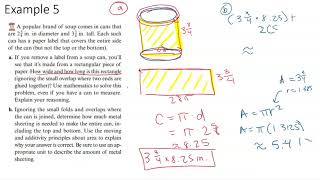 Example 5
A popular brand of soup comes in cans that
are 2 5/8 in. in diameter and 3 3/4 in. tall. Each such
can has a paper label that covers the entire side
of the can (but not the top or the bottom).
a. If you remove a label from a soup can, you'll
see that it's made from a rectangular piece of
paper. How wide and how long is this rectangle
(ignoring the small overlap where two ends are
glued together)? Use mathematics to solve this
problem, even if you have a can to measure.
Explain your reasoning.
b. Ignoring the small folds and overlaps where
the can is joined, determine how much metal
sheeting is needed to make the entire can, in-
cluding the top and bottom. Use the moving
and additivity principles about area to explain
why your answer is correct. Be sure to use an ap-
propriate unit to describe the amount of metal
sheeting.
a
3 3/4
3 3/4
C = π·d
= π·2 5/8
3 3/4 × 8.25 in.
b
(3 3/4 · 8.25) +
A = πr²
A = π(1.3125)
≈ 5.41